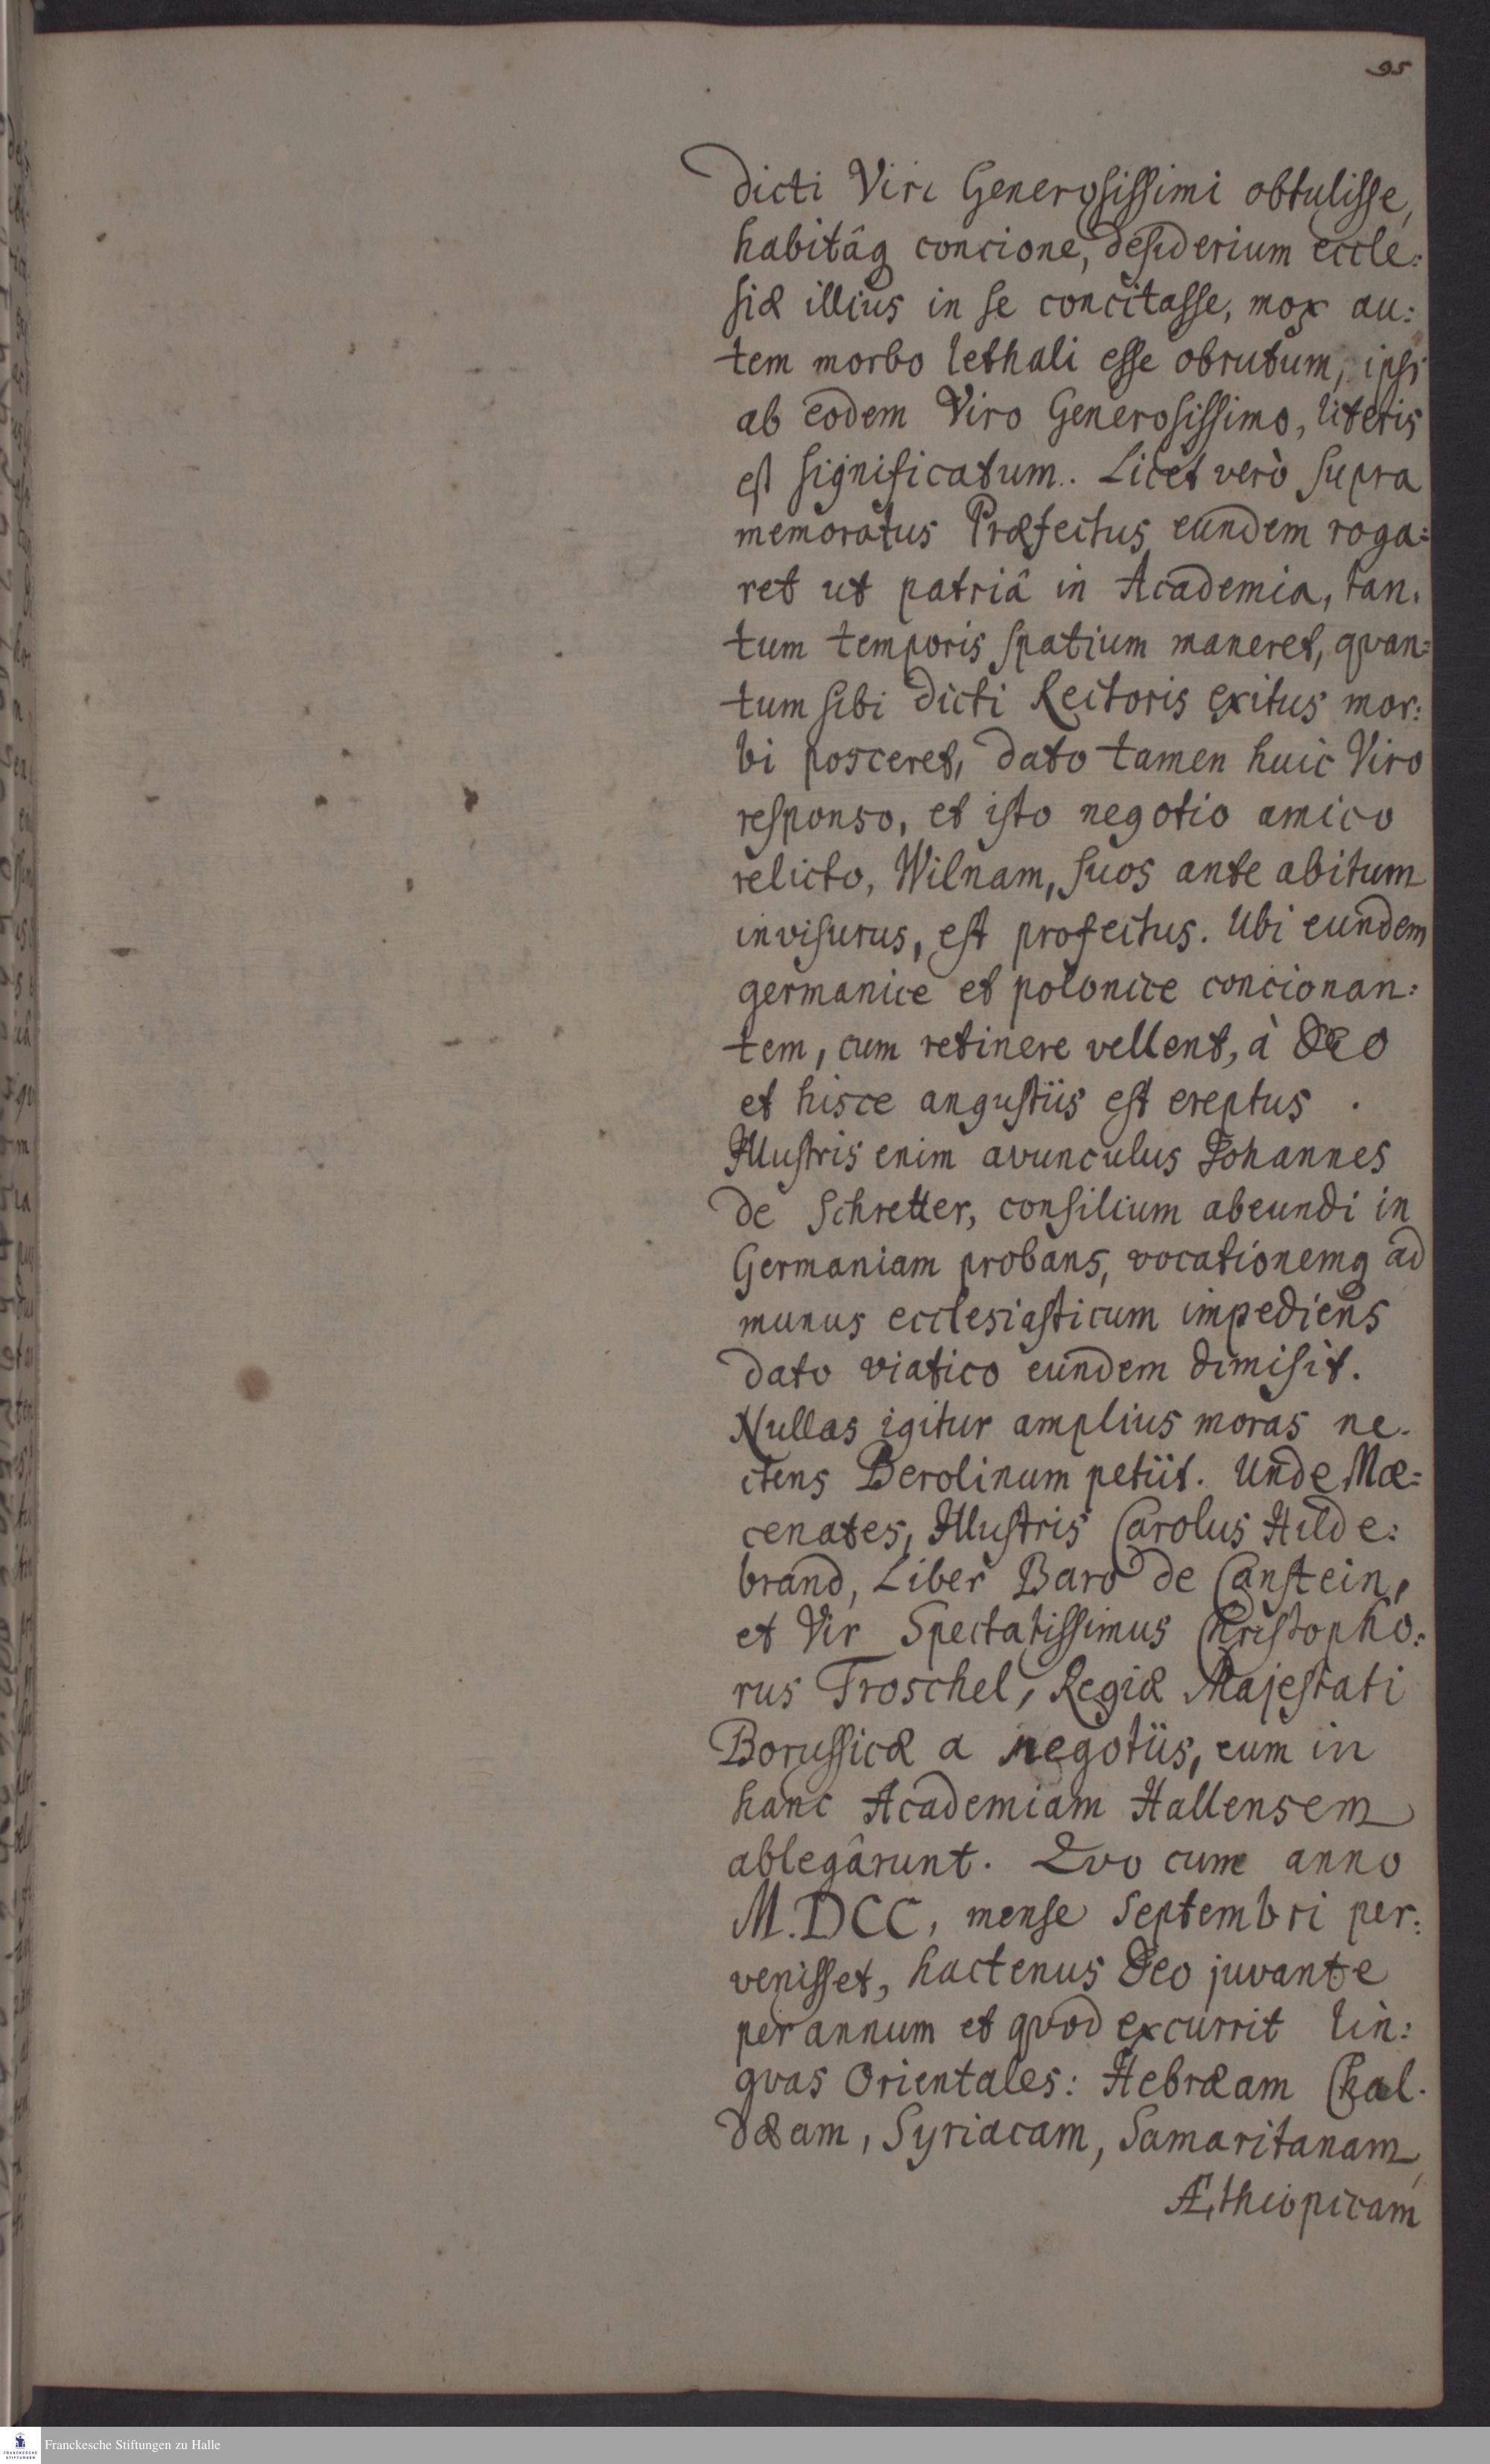 95
dicti Viri Generosissimi obtulisse,
habitâq concione, desiderium eccle:
siæ illius in se concitasse, mox au:
tem morbo lethali esse obrutum, ipsi
ab eodem Viro Generosissimo, literis
est significatum. Licet verò supra
memoratus Præfectus eundem roga:
ret ut patriâ in Academia, tan.
tum temporis spatium maneret, qvan:
tum sibi dicti Rectoris exitus mor:
bi posceret, dato tamen huic Viro
responso, et isto negotio amico
relicto, Wilnam, suos ante abitum
invisurus, est profectus. Ubi eundem
germanice et polonice concionan:
tem, cum retinere vellent, à DEO
et hisce angustiis est ereptus.
Illustris enim avunculus Johannes
de Schretter, consilium abeundi in
Germaniam probans, vocationemq ad
munus ecclesiasticum impediens
dato viatico eundem dimisit.
Nullas igitur amplius moras ne.
ctens Berolinum petiit. Unde Mæ:
cenates, Illustris Carolus Hilde:
brand, Liber Baro de Canstein,
et Vir Spectatissimus Christopho:
rus Troschel, Regiæ Majestati
Borussicæ a negotiis, eum in
hanc Academiam Hallensem
ablegârunt. Qvo cum anno
M.DCC, mense Septembri per:
venisset, hactenus Deo juvante
per annum et qvod excurrit lin:
gvas Orientales: Hebræam Chal.
dæam, Syriacam, Samaritanam,
Æthiopicam
Franckesche Stiftungen zu Halle